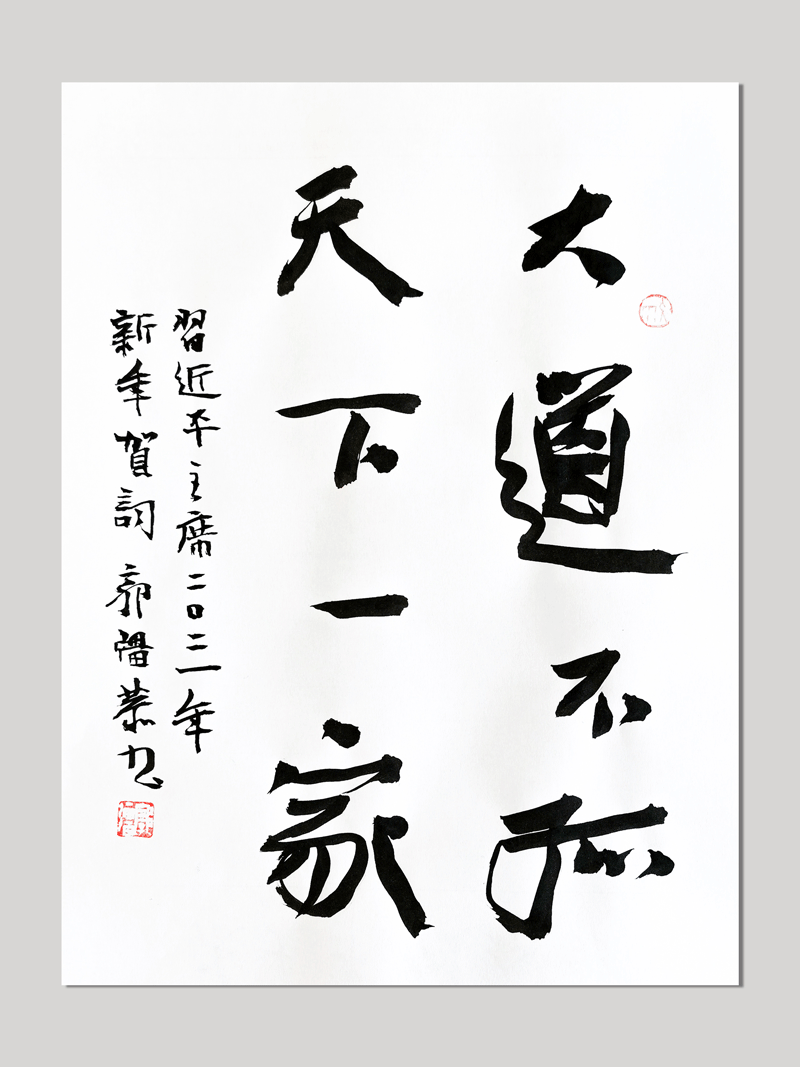 大道不孤
天下一家
習近平主席二〇二一年
新年賀詞 郭 恭书